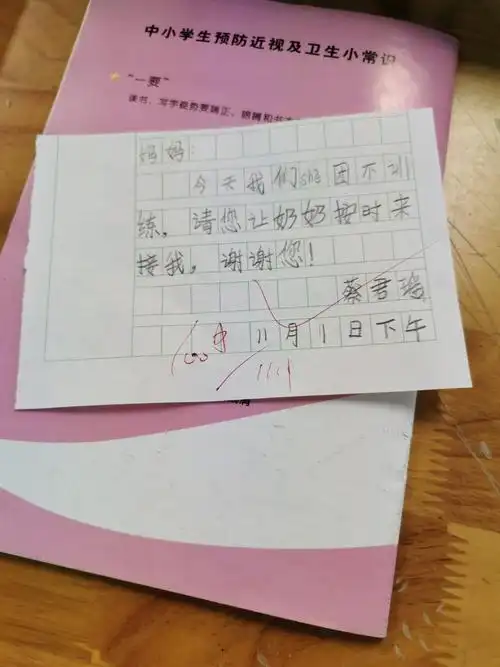 中小学生预防近视及卫生小常识
“一要”
读书、写字姿势要端正，眼睛和书本
妈妈：
今天我们shè团不训
练。请您让奶奶按时来
接我。谢谢您！
蔡君瑶
11月1日下午
100
11.1